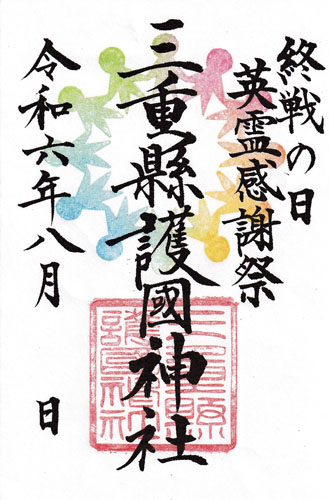 終戦の日
英霊感謝祭
三重縣護國神社
令和六年八月 日
三重縣護國神社